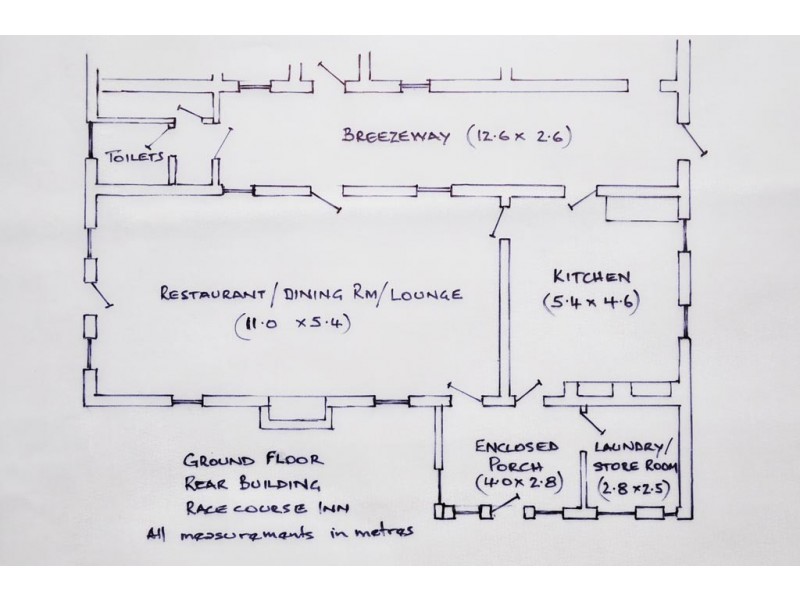 BREEZEWAY (12.6 x 2.6)
TOILETS
RESTAURANT/DINING RM/LOUNGE
(11.0 x 5.4)
KITCHEN
(5.4 x 4.6)
ENCLOSED
PORCH
(4.0 x 2.8)
LAUNDRY/
STORE ROOM
(2.8 x 2.5)
GROUND FLOOR
REAR BUILDING
RACECOURSE INN
All measurements in metres